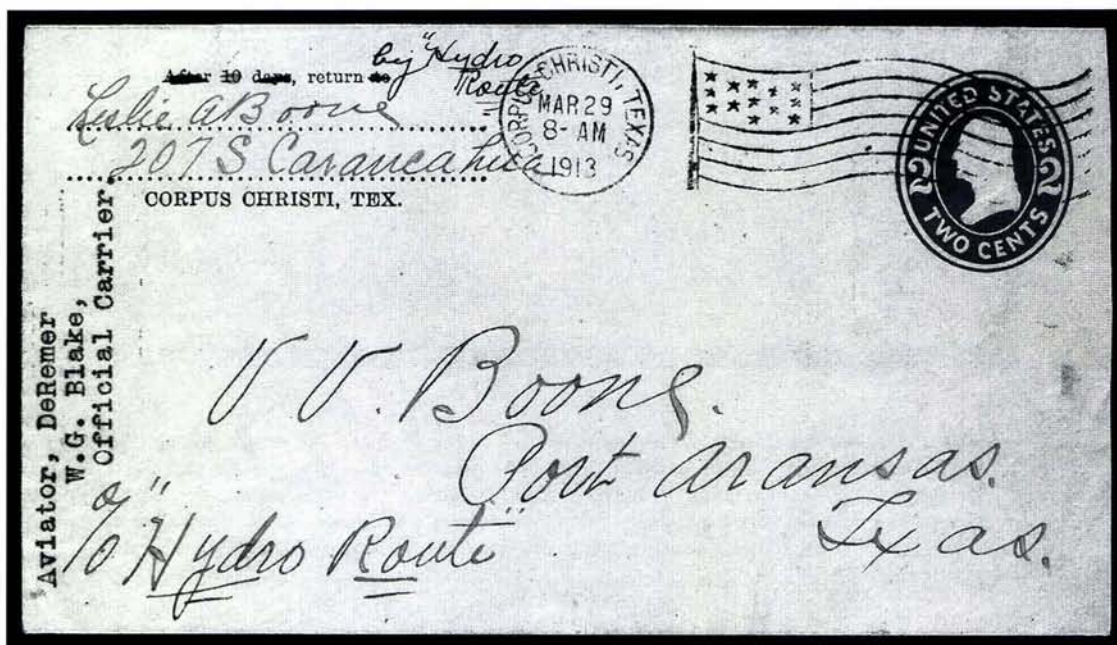 by "Hydro
Route"
After 10 days, return to
Leslie A Boone
207 S Carancahua
CORPUS CHRISTI, TEX.
CORPUS CHRISTI, TEXAS
MAR 29
8-AM
1913
UNITED STATES
2 2
TWO CENTS
Aviator, DeRemer
W.G. Blake,
Official Carrier.
V V. Boone.
Port Aransas.
Texas.
"Hydro Route"